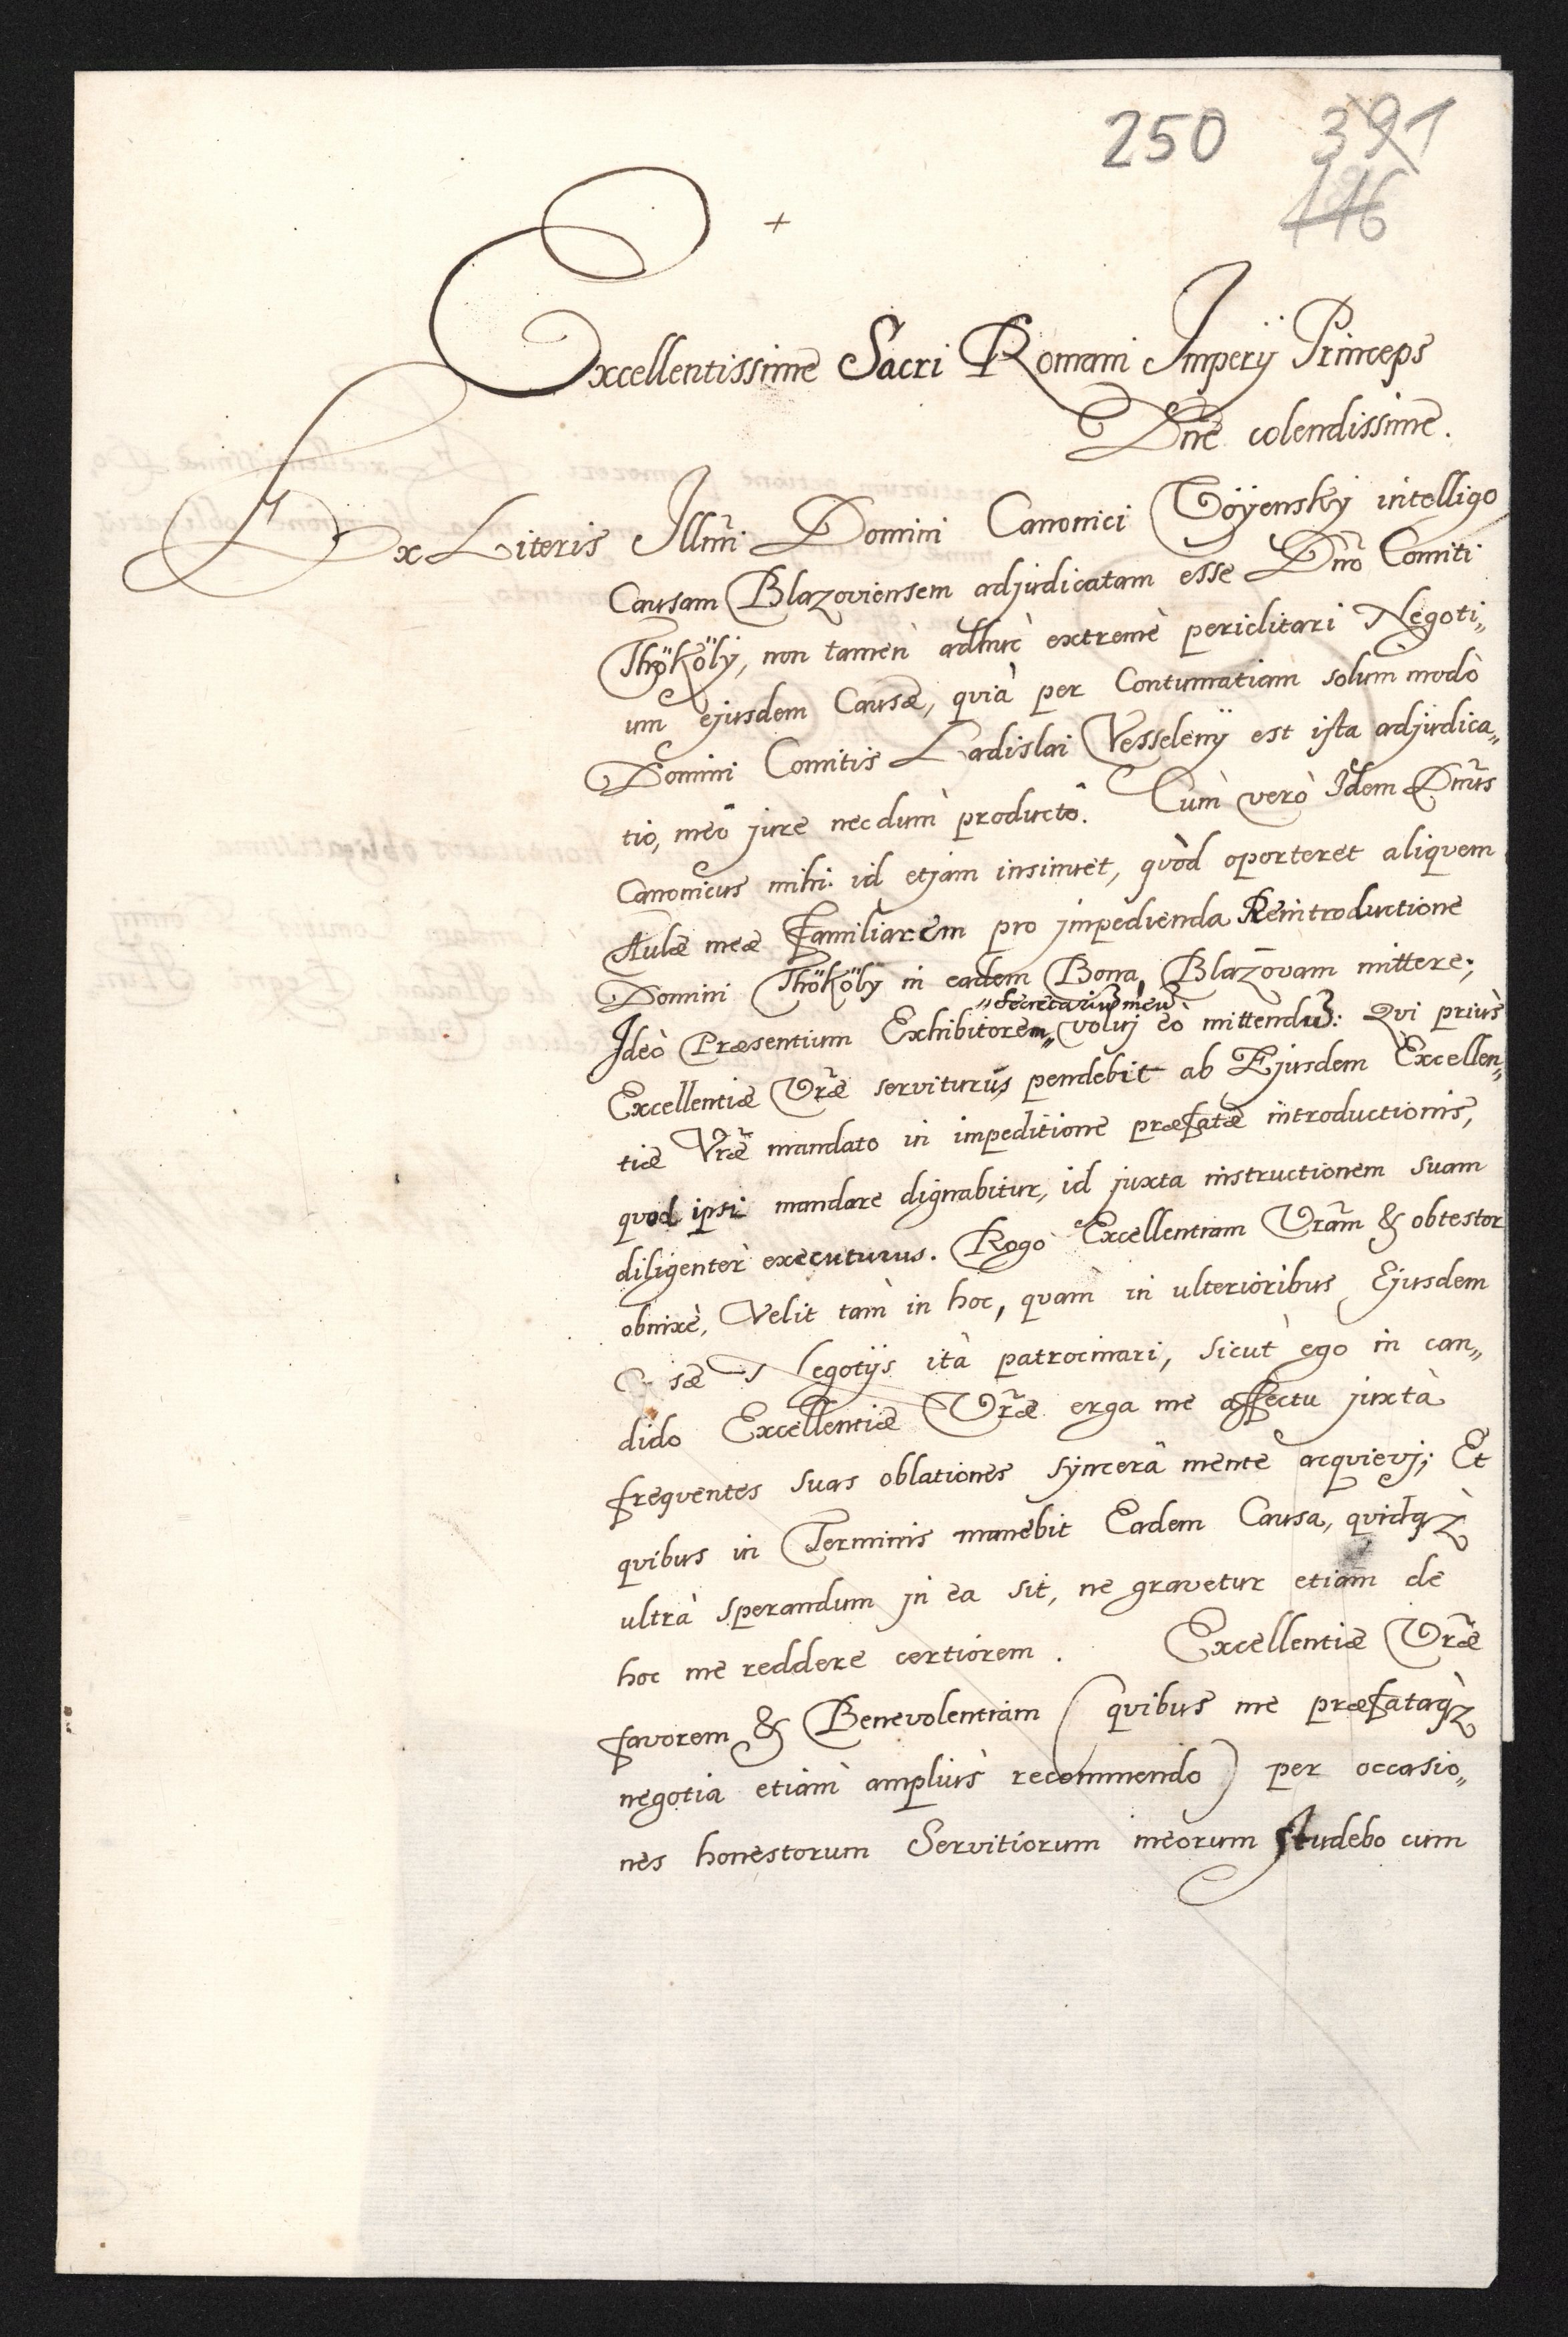 250 391
116
+
Excellentissime Sacri Romani Imperÿ Princeps
Dne colendissime.
Ex Literis Illmi Domini Canonici Töÿensky intelligo
Causam Blazoviensem adjudicatam esse Dno Comiti
Thököly, non tamen adhuc extremè periclitari Negoti„
um ejusdem Causæ, quià per Contumatiam solummodò
Domini Comitis Ladislai Vesselenÿ est ista adjudica„
tio, meô jure necdum productô. Cum verò Idem Dnus
Canonicus mihi id etjam insinuet, quòd oporteret aliquem
Aulæ meæ familiarem pro jmpedienda Reintroductione
Domini Thököly in eadem Bona Blazovam mittere;
„Secretariũ meũ
Ideò Præsentium Exhibitorem„ voluj eò mittendũ: Qui priùs
Excellentiæ Vræ serviturus, pendebit ab Ejusdem Excellen„
tiæ Vræ mandato in impeditione præfatæ introductionis,
quod ipsi mandare dignabitur, id juxta instructionem suam
diligenter executurus. Rogo Excellentiam Vram & obtestor
obnixè, Velit tam in hoc, quam in ulterioribus Ejusdem
sæ Negotÿs ità patrocinari, sicut ego in can„
dido Excellentiæ Vræ erga me affectu juxtà
frequentes suas oblationes syncerâ mente acquievj; Et
quibus in Terminis manebit Eadem Causa, quidqz
ultrà sperandum in ea sit, ne gravetur etiam de
hoc me reddere certiorem. Excellentiæ Vræ
favorem & Benevolentiam (quibus me præfataqz
negotia etiam ampliùs recommendo) per occasio„
nes honestorum Servitiorum meorum studebo cum